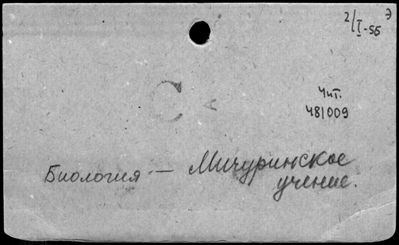 2/I-55 Э
Чит.
481009
С
Биология — Мичуринское
учение.